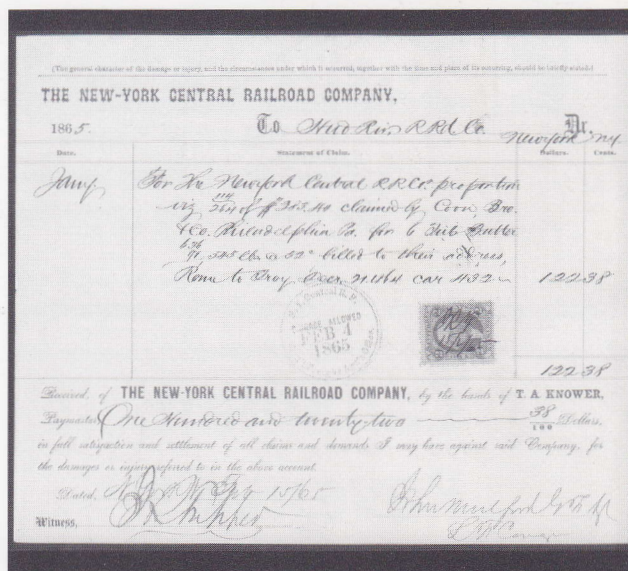 (The general character of the damage or injury, and the circumstances under which it occurred, together with the time and place of its occurring, should be briefly stated.)
THE NEW-YORK CENTRAL RAILROAD COMPANY,
1865. To Hud Riv. R Rd Co. Dr.
New york NY
Date. Statement of Claim. Dollars. Cents.
Jany. For the New york Central R.R. Co's proportion
viz 114/264 of $283.40 claimed by Coon, Bro.
& Co. Philadelphia Pa. for 6 Butter
lbs 52c billed to their address,
Rome to Troy 21/64 car 432 122 38
Central R. R.
ALLOWED
FEB 4
1865
122 38
Received, of THE NEW-YORK CENTRAL RAILROAD COMPANY, by the hands of T. A. KNOWER,
Paymaster, One Hundred and twenty two 38/100 Dollars,
in full satisfaction and settlement of all claims and demands I may have against said Company, for
the damages or injury referred to in the above account.
Dated, 15/65
John Mulford
Witness,